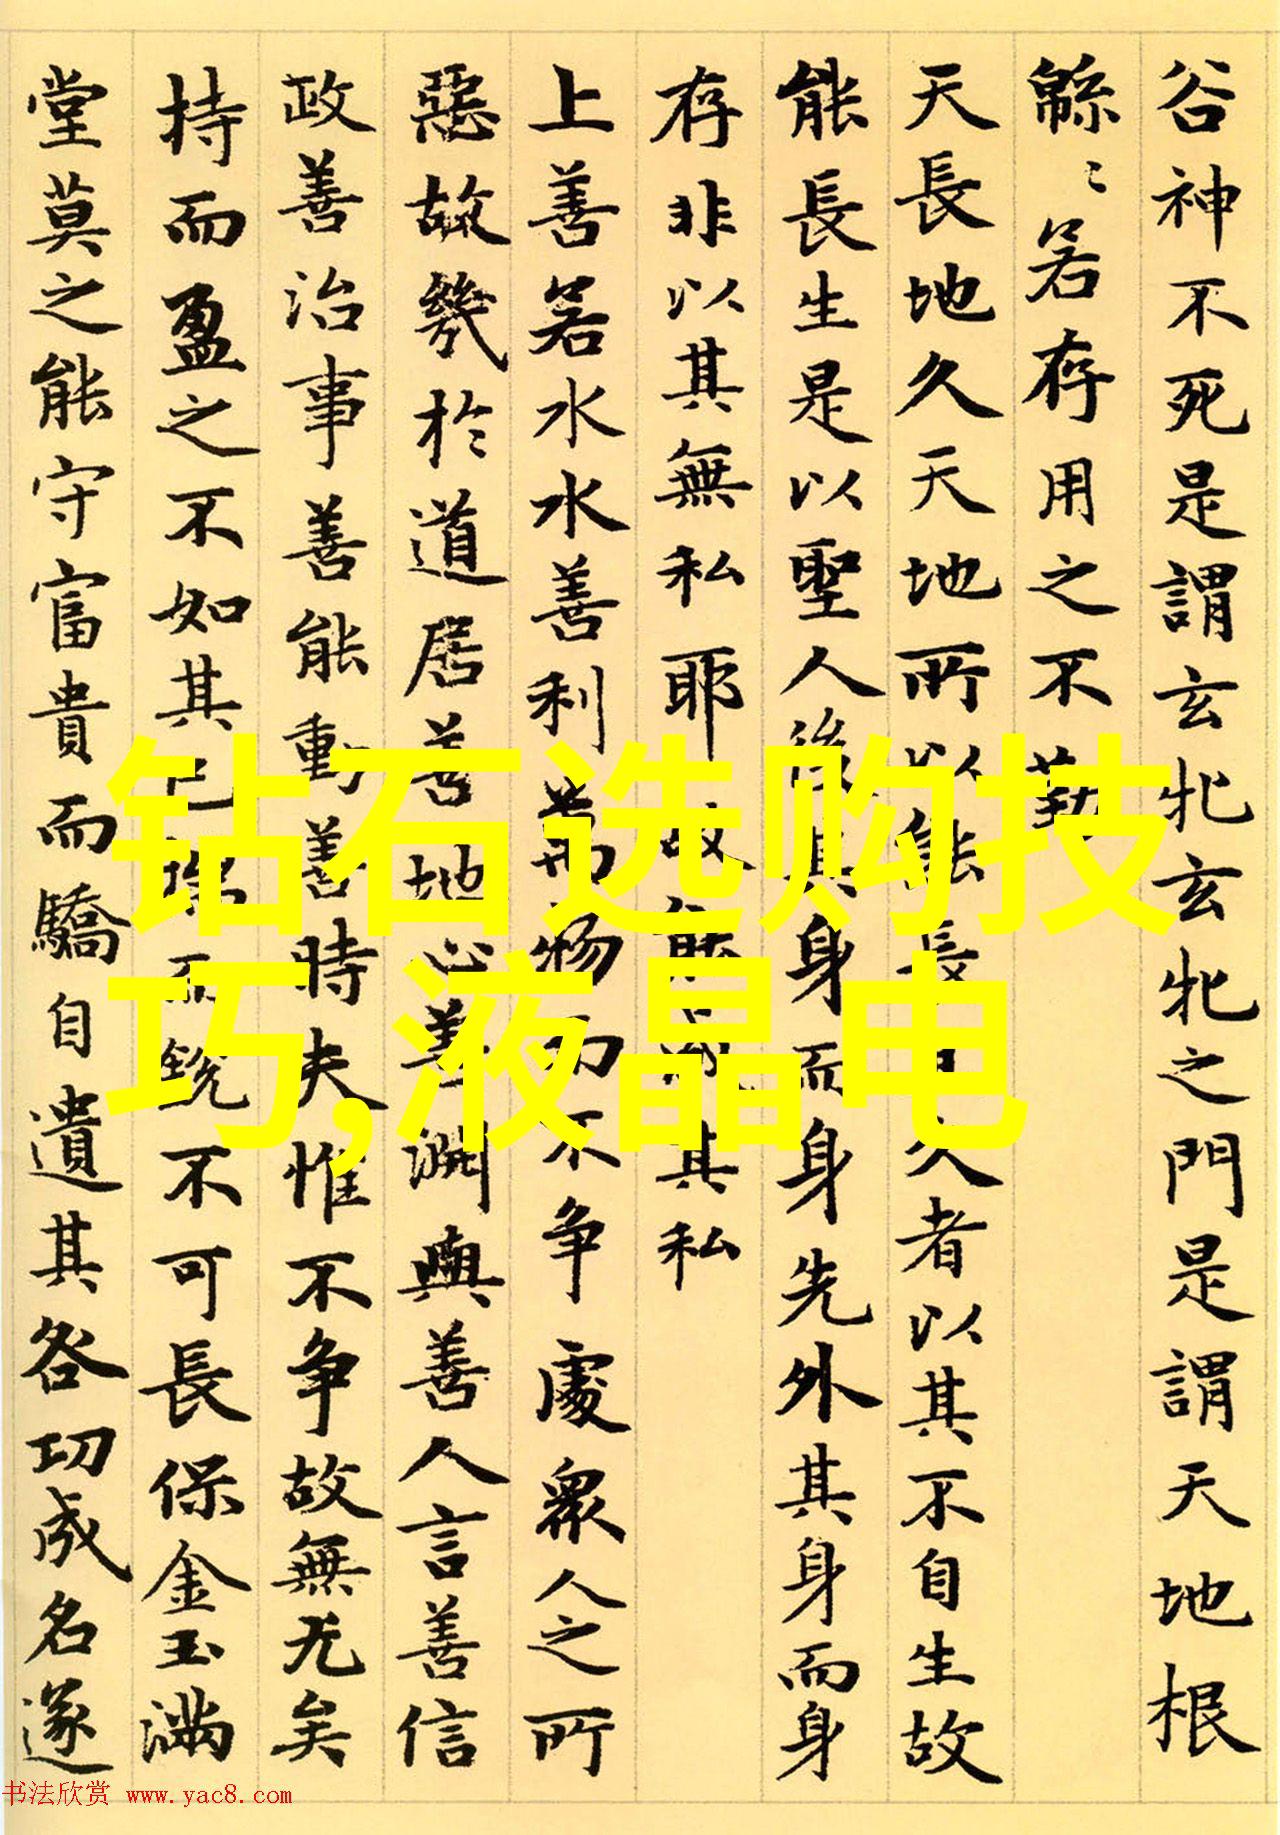 谷神不死是謂玄牝玄牝之門是謂天地根
緜〻若存用之不勤
天長地久天地所以能長久者以其不自生故
能長生是以聖人後其身而身先外其身而身
存非以其無私耶故能其私
上善若水水善利萬物而不争處衆人之所
惡故幾於道居善地心善淵與善人言善信
政善治事善能動善時夫惟不争故無尤矣
持而盈之不如其已而銳不可長保金玉滿
堂莫之能守富貴而驕自遺其咎功成名遂
钻石选购技
巧,液晶电
书法欣赏 www.yac8.com